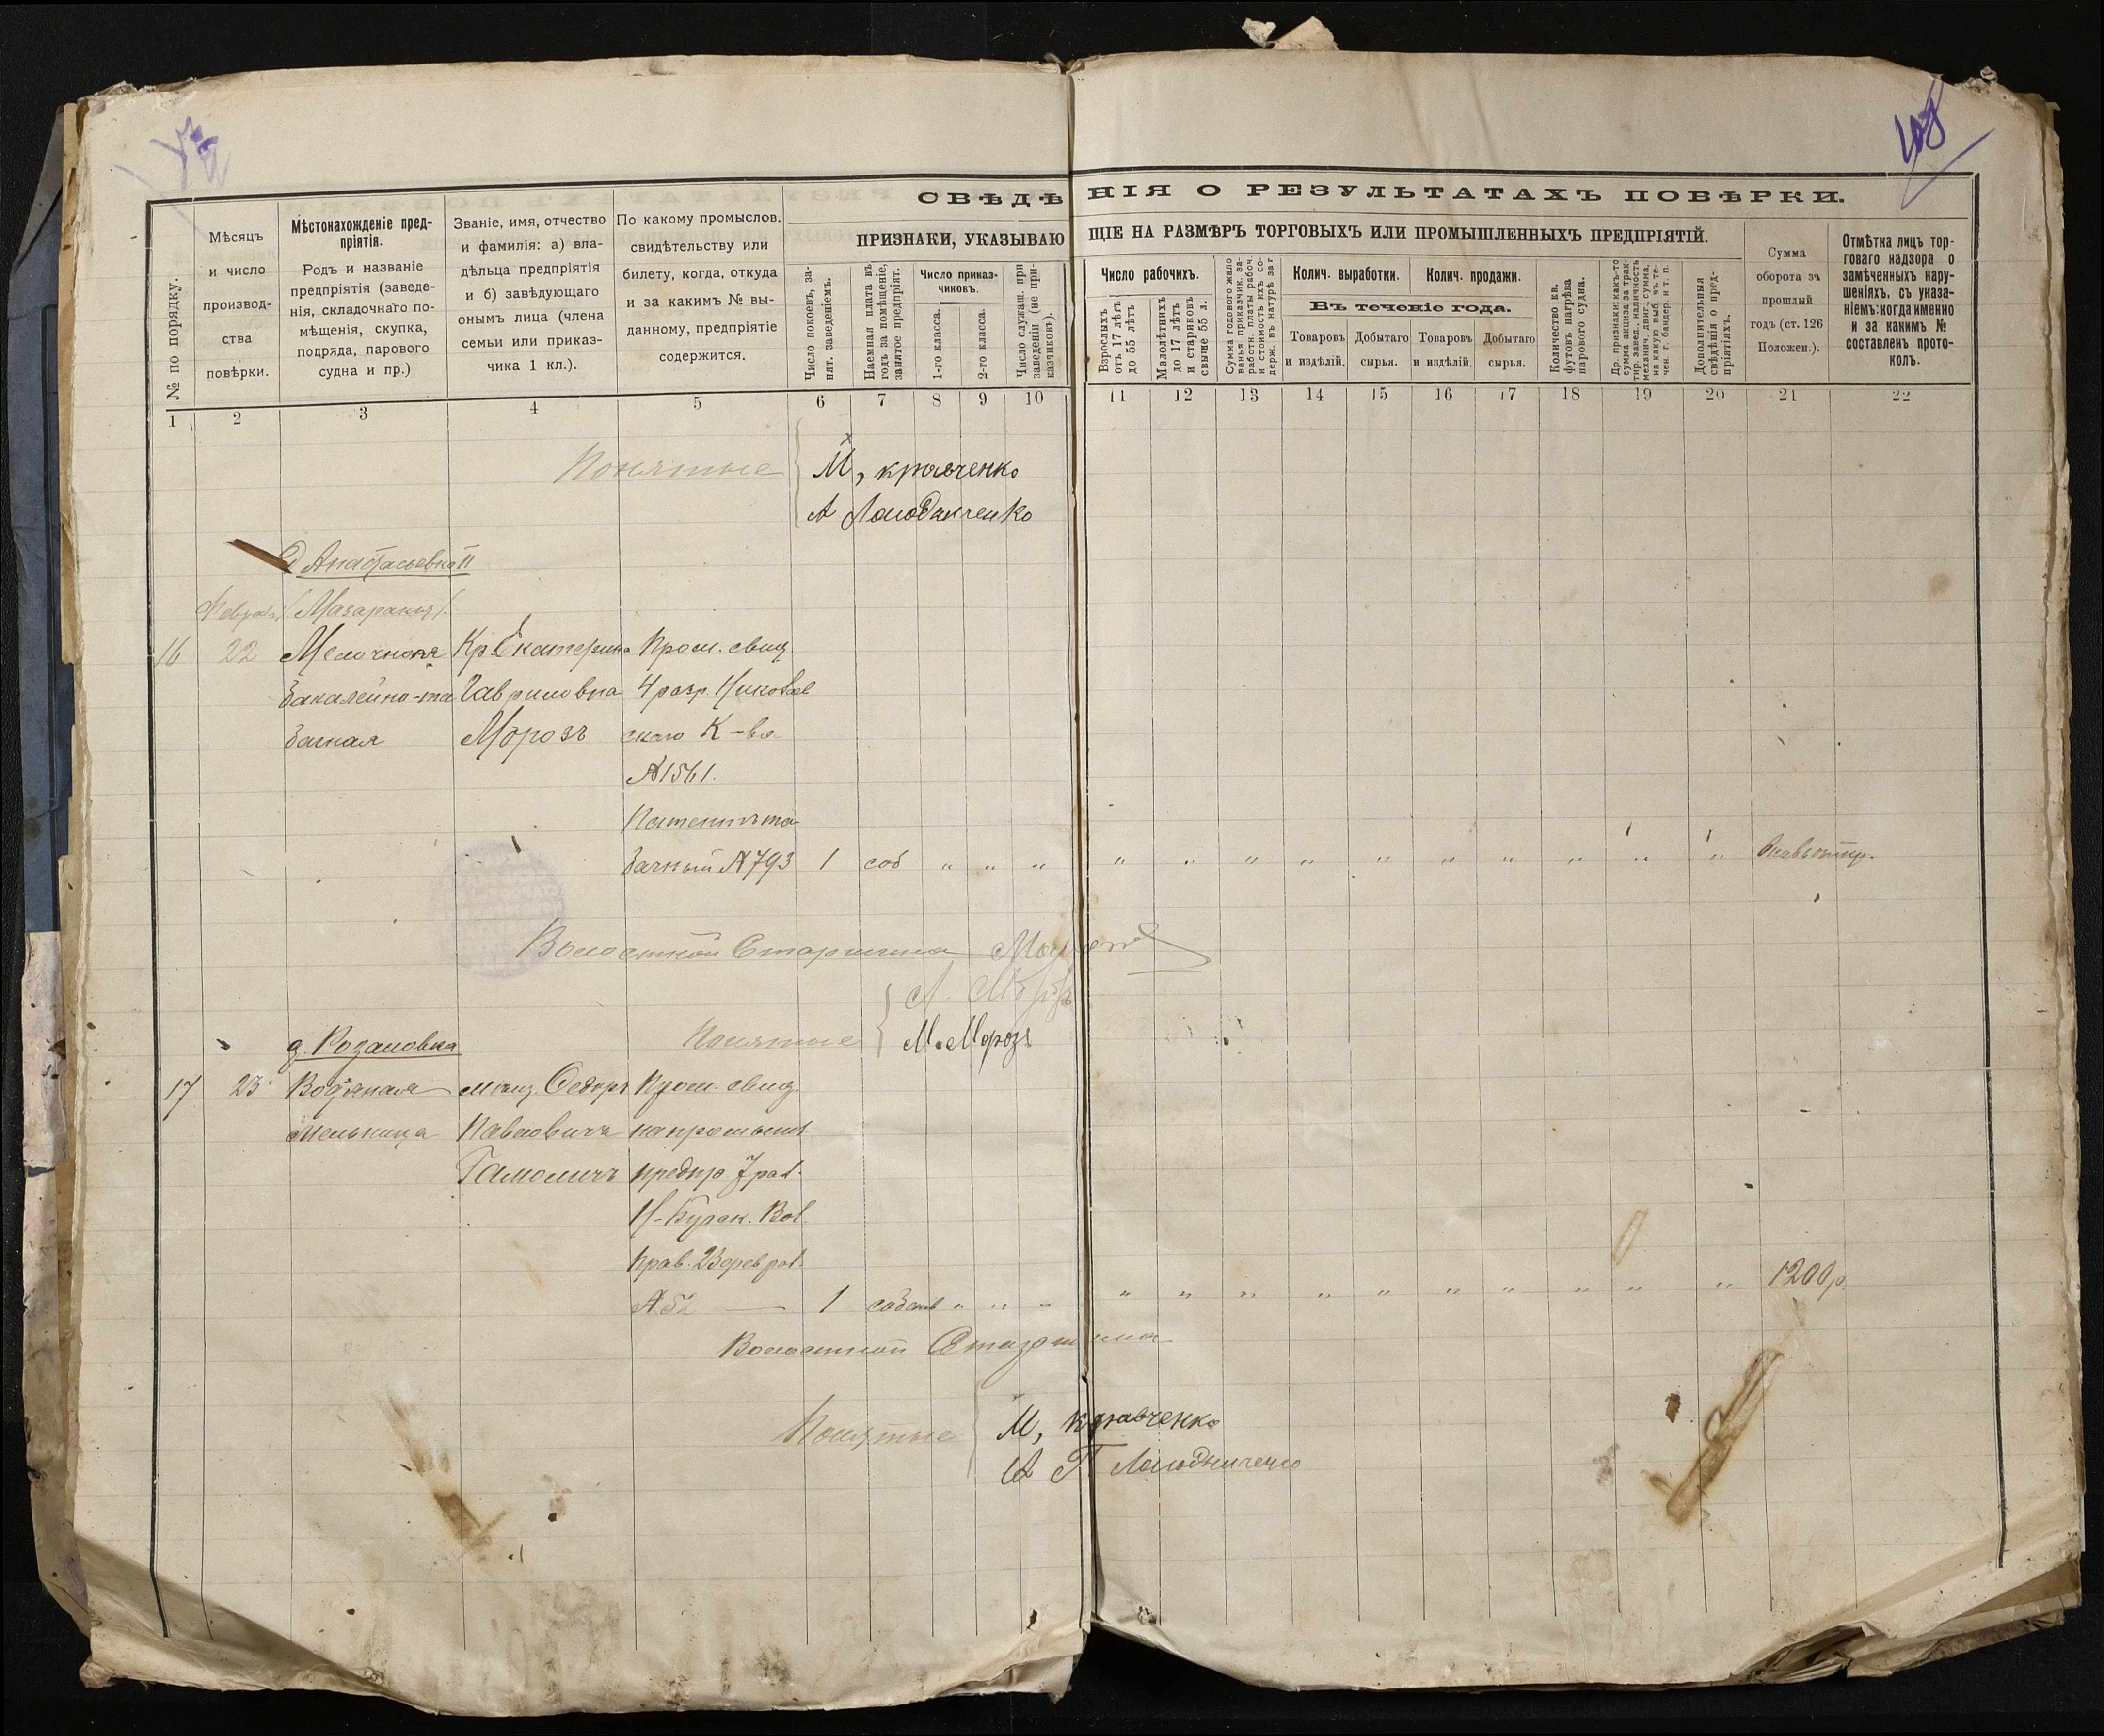 108
СВѢДѢНІЯ О РЕЗУЛЬТАТАХЪ ПОВѢРКИ.
№ по порядку.
Мѣсяцъ
и число
производ-
ства
повѣрки.
Мѣстонахожденіе пред-
пріятія.
Родъ и названіе
предпріятія (заведе-
нія, складочнаго по-
мѣщенія, скупка,
подряда, парового
судна и пр.)
Званіе, имя, отчество
и фамилія: а) вла-
дѣльца предпріятія
и б) завѣдующаго
онымъ лица (члена
семьи или приказ-
чика 1 кл.).
По какому промыслов.
свидѣтельству или
билету, когда, откуда
и за какимъ № вы-
данному, предпріятіе
содержится.
ПРИЗНАКИ, УКАЗЫВАЮЩІЕ НА РАЗМѢРЪ ТОРГОВЫХЪ ИЛИ ПРОМЫШЛЕННЫХЪ ПРЕДПРІЯТІЙ.
Число покоевъ, за-
нят. заведеніемъ.
Наемная плата въ
годъ за помѣщеніе,
занятое предпріят.
Число приказ-
чиковъ.
1-го класса.
2-го класса.
Число служащ. при
заведеніи (не при-
казчиковъ).
Число рабочихъ.
Взрослыхъ
отъ 17 лѣтъ
до 55 лѣтъ
Малолѣтнихъ
до 17 лѣтъ
и стариковъ
свыше 55 л.
Сумма годового жало
ванья приказчик. за-
работн. платы рабоч.
и стоимость ихъ со-
держ. въ натурѣ за г
Колич. выработки.
Колич. продажи.
Въ теченіе года.
Товаровъ
и издѣлій.
Добытаго
сырья.
Товаровъ
и издѣлій.
Добытаго
сырья.
Количество кв.
футовъ нагрѣва
парового судна.
Др. признаки: какъ-то
сумма акциза за трак-
тир. завед., наличность
механич. двиг., сумма,
на какую выб. въ те-
чен. г. бандер. и т. п.
Дополнительныя
свѣдѣнія о пред-
пріятіяхъ.
Сумма
оборота за
прошлый
годъ (ст. 126
Положен.).
Отмѣтка лицъ тор-
говаго надзора о
замѣченныхъ нару-
шеніяхъ, съ указа-
ніемъ: когда именно
и за какимъ №
составленъ прото-
колъ.
1 2 3 4 5 6 7 8 9 10 11 12 13 14 15 16 17 18 19 20 21 22
Понятые
М, кравченко
А
Анастасьевка II
16 22 Мелочная Кр. Екатерина Пром. свид
бакалейно-та Гавриловна 4 разр.
бачная Морозъ скаго К-ва
№ 1561.
Патентъ та
бачный № 793 1 соб " " " " " " " " " " " " "
Волостной Старшина
Понятые
М. Морозъ
д. Розановка
17 23 Водяная мѣщ. Федоръ Пром. свид.
мельница Павловичъ на промышл
предпр 7 раз.
Вол
Прав. 23 феврал.
№ 52 — 1 собств " " " " " " " " " " " " " 1200 р
Волостной Старшина
Понятые
М, кравченко